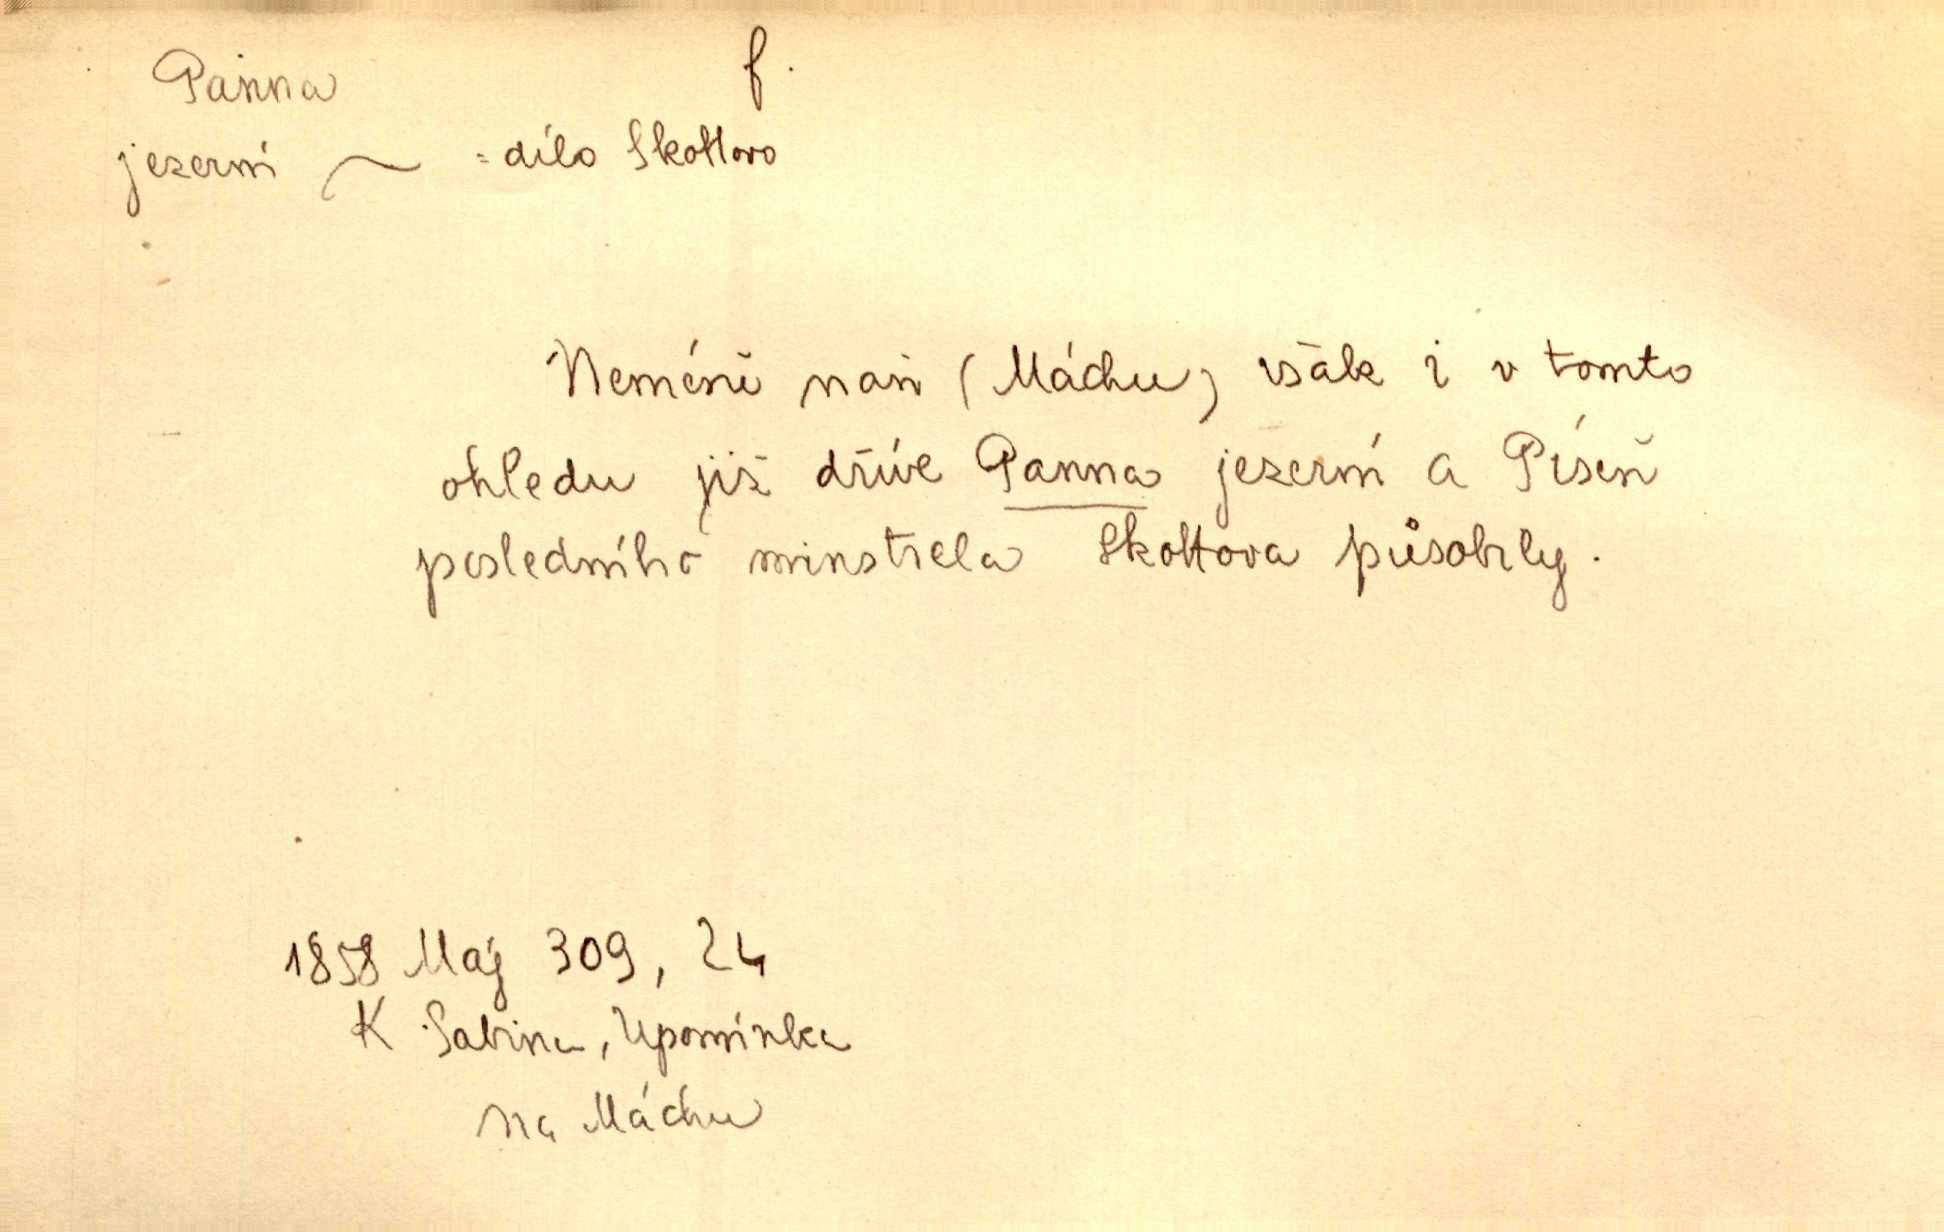 Panna f.
jezerní ~ = dílo Skottovo
Neméně naň (Máchu) však i v tomto
ohledu již dříve Panna jezerní a Píseň
posledního minstrela Skottova působily.
1858 Máj 309, 24
K Sabina, Upomínka
na Máchu